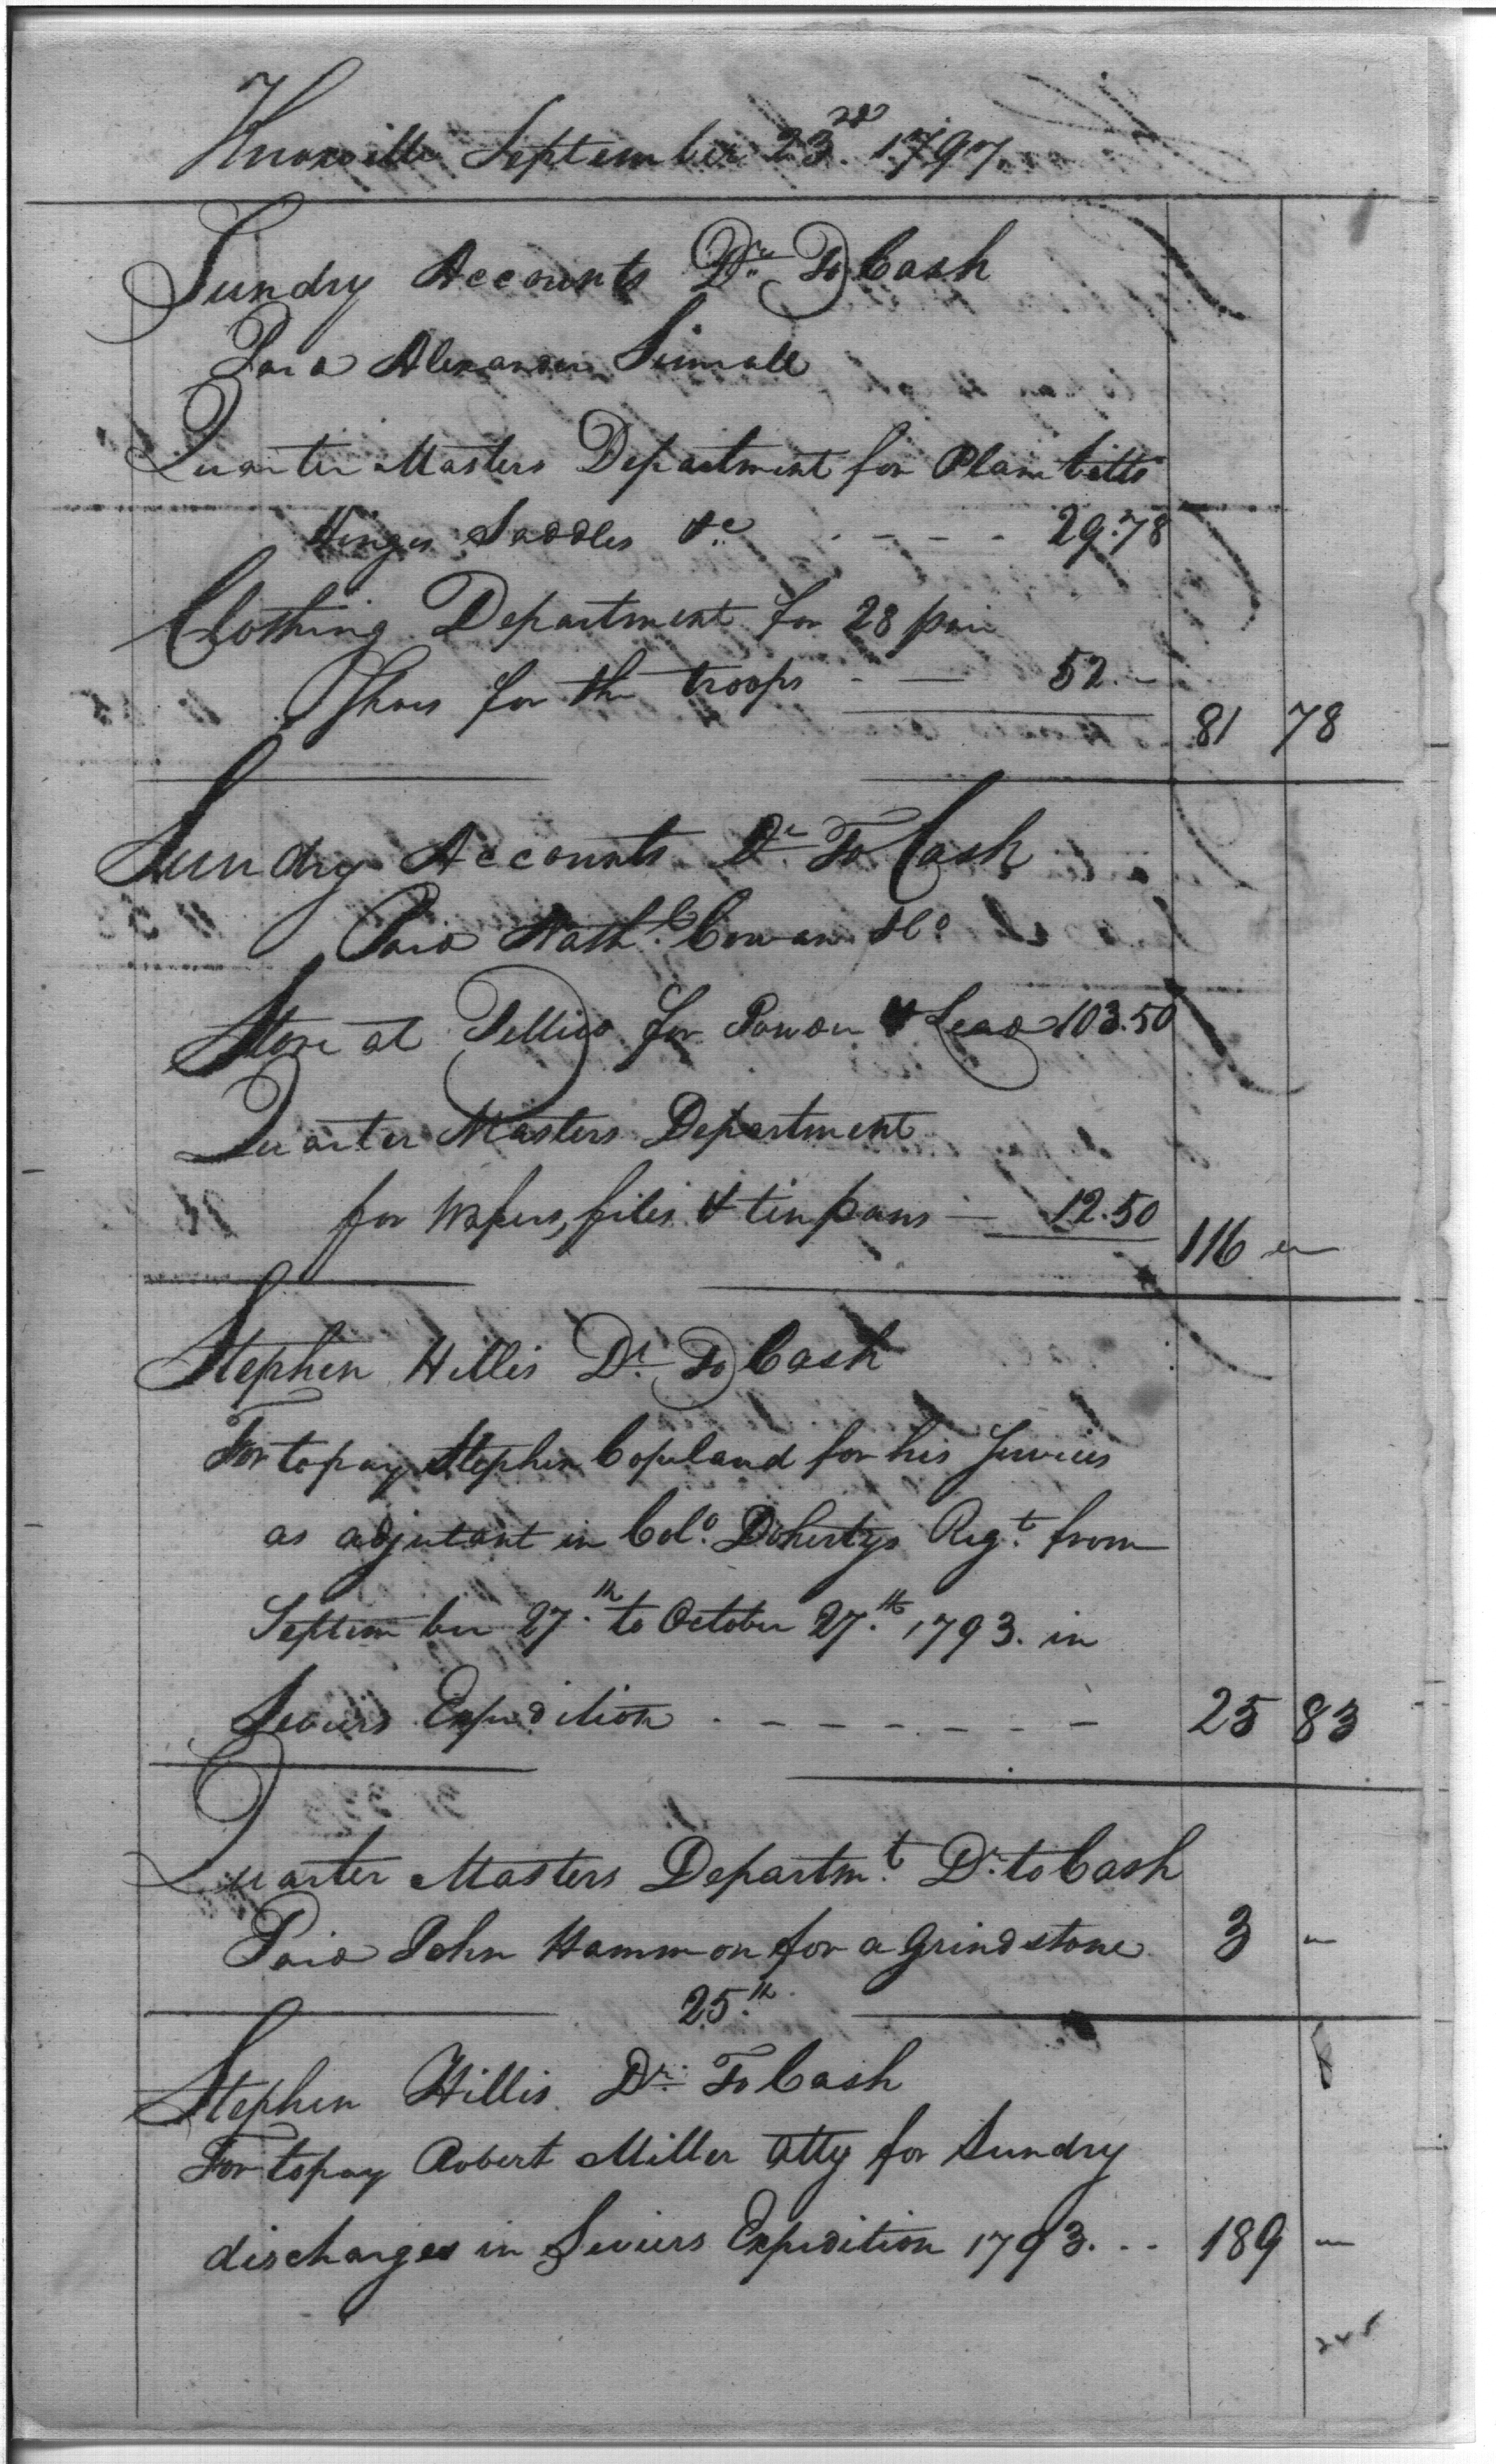 Knoxville September 23rd 1797.
Sundry Accounts Dr. To Cash
Paid Alexander
Quarter Masters Department for Plain bitts
Hinges Saddles &c - - - - 29.78
Clothing Department for 28 pair
Shoes for the troops - — 52 –
81 78
Sundry Accounts Dr. To Cash
Paid Nathl. Cowan &Co
Store at Tellico for Powder & Lead 103.50
Quarter Masters Department
for Wafers, files & tin pans — 12.50
116 "
Stephen Hillis Dr. To Cash
For to pay Stephen Copeland for his Services
as adjutant in Colo. Dohertys Regt. from
September 27.th to October 27.th 1793. in
Seviers Expedition - - - - - - - 25 83
Quarter Masters Departmt. Dr. to Cash
Paid John Hammon for a Grindstone 3 "
25.th
Stephen Hillis Dr. To Cash
For to pay Robert Miller atty for Sundry
discharges in Seviers Expedition 1793. - - 189 "